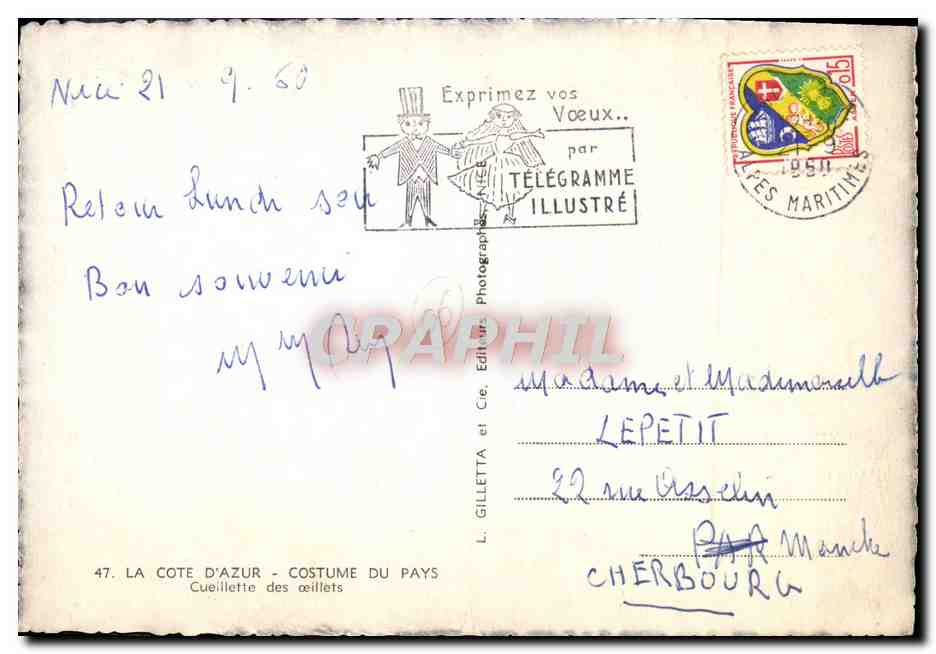 Nice 21 9. 60
Exprimez vos
Vœux..
par
TÉLÉGRAMME
ILLUSTRÉ
REPUBLIQUE FRANÇAISE
0,15
POSTES
ALGER
1960
ALPES MARITIMES
Retour Lundi soir
Bon souvenir
CPAPHIL
66
L. GILLETTA et Cie, Editeurs Photographes, NICE
Madame et Mademoiselle
LEPETIT
22 rue Asselin
PAR Manche
CHERBOURG
47. LA COTE D'AZUR - COSTUME DU PAYS
Cueillette des œillets